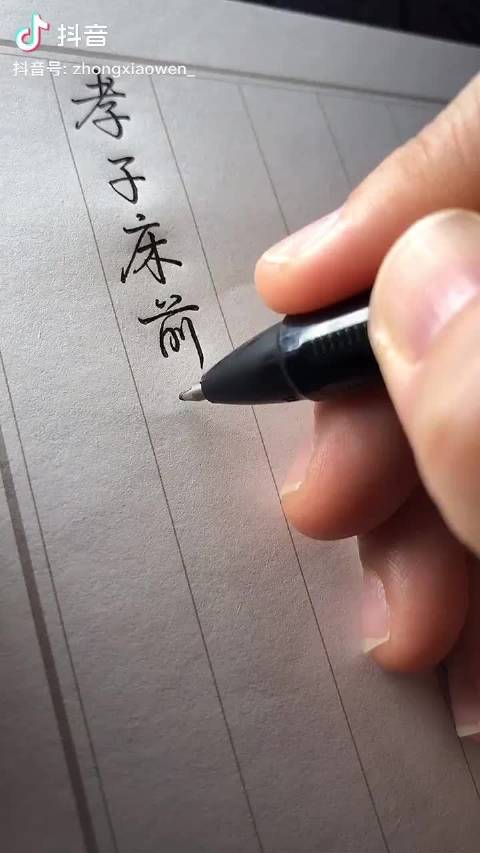 抖音
抖音号: zhongxiaowen_
孝子床前